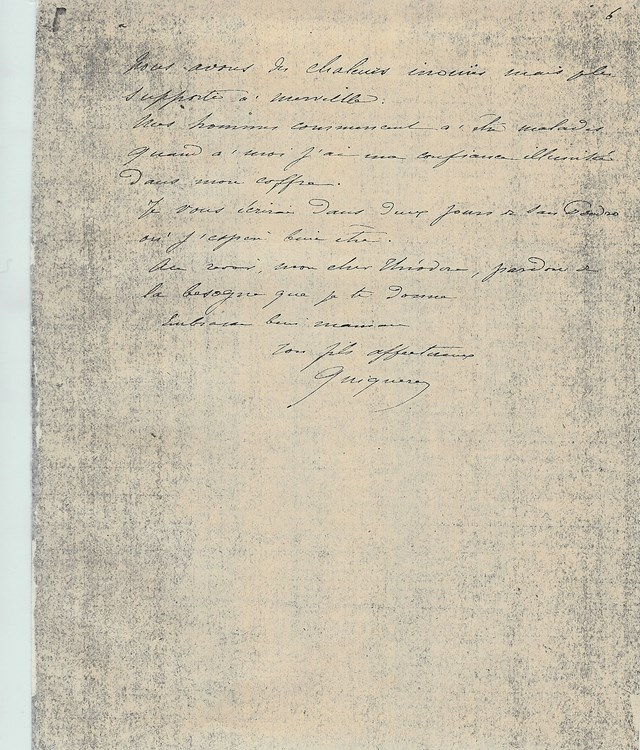 6
Nous avons des chaleurs inouïes mais je les
supporte à merveille.
Mes hommes commencent à être malades
quand à moi j'ai ma confiance illimitée
dans mon coffre.
Je vous écrirai dans deux jours de San Pedro
où j'espère bien être.
Au revoir, mon cher Théodore, pardon de
la besogne que je te donne
Embrasse bien maman
ton fils affectueux